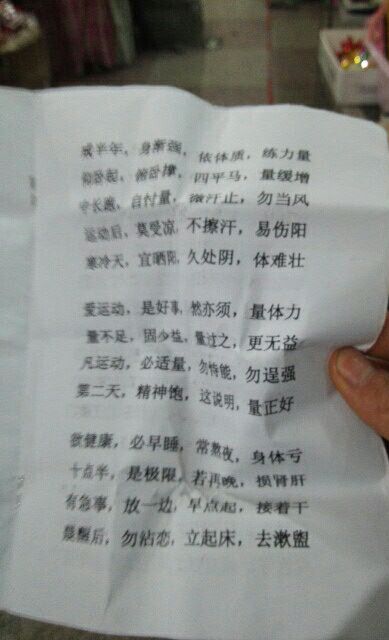 成半年，身渐强，依体质，练力量
仰卧起，俯卧撑，四平马，量缓增
中长跑，自忖量，微汗止，勿当风
运动后，莫受凉，不擦汗，易伤阳
寒冷天，宜晒阳，久处阴，体难壮
爱运动，是好事，然亦须，量体力
量不足，固少益，量过之，更无益
凡运动，必适量，勿恃能，勿逞强
第二天，精神饱，这说明，量正好
欲健康，必早睡，常熬夜，身体亏
十点半，是极限，若再晚，损肾肝
有急事，放一边，早点起，接着干
晨醒后，勿沾恋，立起床，去漱盥